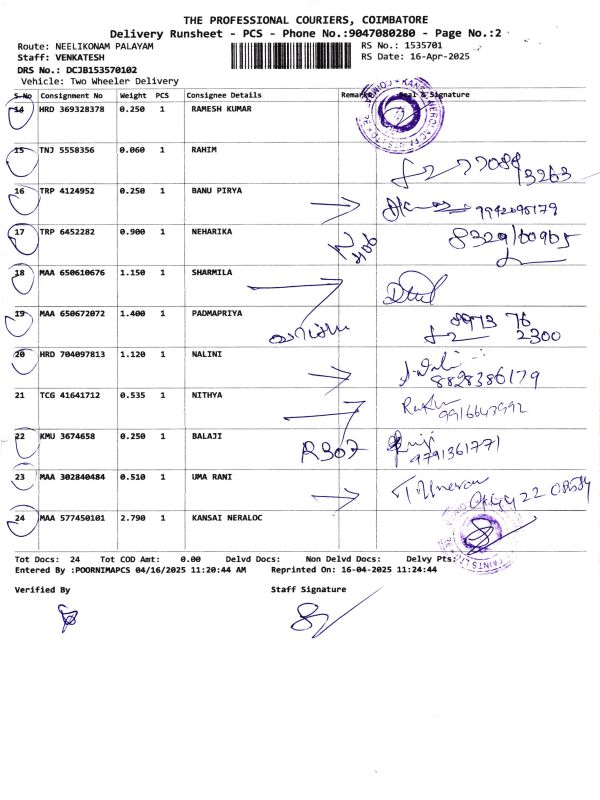 THE PROFESSIONAL COURIERS, COIMBATORE
Delivery Runsheet - PCS - Phone No.:9047080280 - Page No.:2
Route: NEELIKONAM PALAYAM RS No.: 1535701
Staff: VENKATESH RS Date: 16-Apr-2025
DRS No.: DCJB153570102
Vehicle: Two Wheeler Delivery
S-No Consignment No Weight PCS Consignee Details Remarks Seal & Signature
14 HRD 369328378 0.250 1 RAMESH KUMAR
15 TNJ 5558356 0.060 1 RAHIM
16 TRP 4124952 0.250 1 BANU PIRYA
17 TRP 6452282 0.900 1 NEHARIKA 8329160965
18 MAA 650610676 1.150 1 SHARMILA
19 MAA 650672072 1.400 1 PADMAPRIYA 8973 76
2300
20 HRD 704097813 1.120 1 NALINI
8828386179
21 TCG 41641712 0.535 1 NITHYA
9916643992
22 KMU 3674658 0.250 1 BALAJI R307
9791361771
23 MAA 302840484 0.510 1 UMA RANI
24 MAA 577450101 2.790 1 KANSAI NERALOC
Tot Docs: 24 Tot COD Amt: 0.00 Delvd Docs: Non Delvd Docs: Delvy Pts:
Entered By :POORNIMAPCS 04/16/2025 11:20:44 AM Reprinted On: 16-04-2025 11:24:44
Verified By Staff Signature